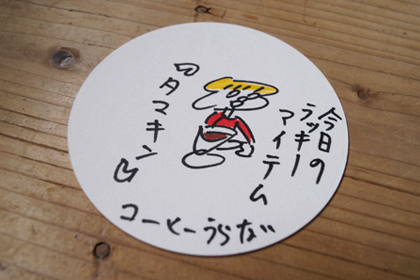 今日の
ラッキー
アイテム
「タマキン」
コーヒーうらない